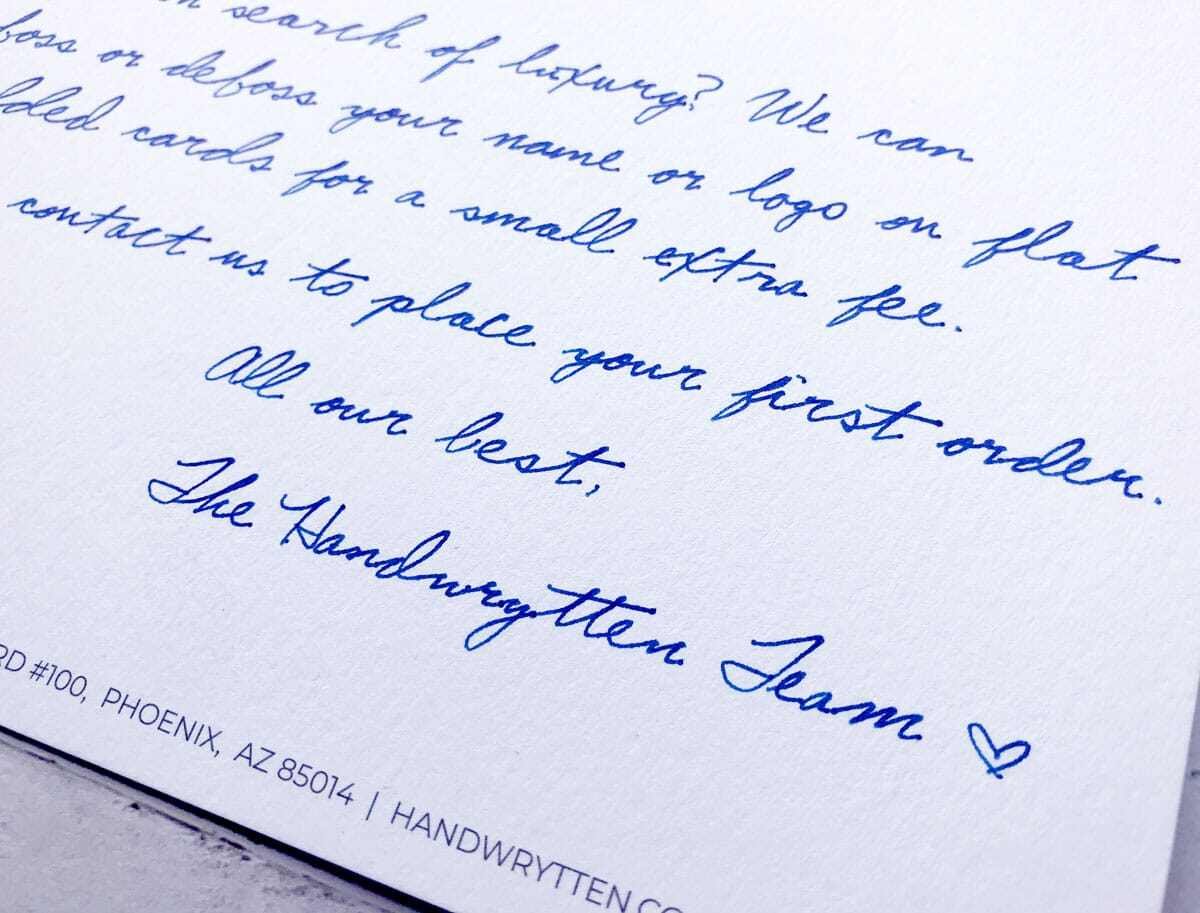 search of luxury? We can
boss or deboss your name or logo on flat
lded cards for a small extra fee.
contact us to place your first order.
All our best,
The Handwrytten Team
RD #100, PHOENIX, AZ 85014 | HANDWRYTTEN.CO